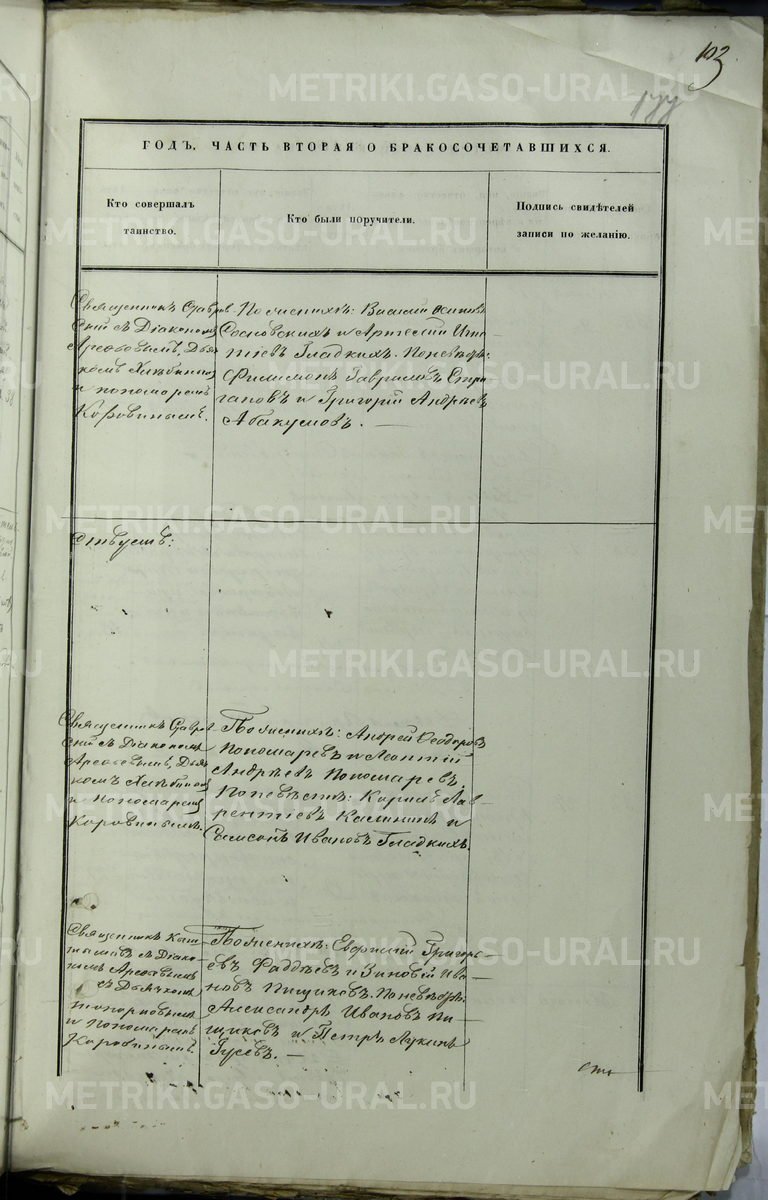 193
177
ГОДЪ, ЧАСТЬ ВТОРАЯ О БРАКОСОЧЕТАВШИХСЯ.
Кто совершалъ
таинство.
Кто были поручители.
Подпись свидѣтелей
записи по желанію.
Священникъ Ставров
скій съ Діакономъ
Арефьевымъ, Дья
комъ Хлѣбинымъ
и пономаремъ
Коровинымъ.
По женихѣ: Василій
Сосновскихъ и Артемій Игна
тіевъ Гладкихъ. По невѣстѣ:
Филимонъ Гавриловъ Стри
гановъ и Григорій Андреевъ
Абакумовъ. —
Священникъ Ставров
скій съ Діакономъ
Арефьевымъ, Дья
комъ Хлѣбинымъ
и Пономаремъ
Коровинымъ.
По женихѣ: Андрей Ѳеодоровъ
Пономаревъ и Леонтій
Андреевъ Пономаревъ,
По невѣстѣ: Кирилъ Лав
рентіевъ Калининъ и
Самсонъ Ивановъ Гладкихъ.
Священникъ
съ Діако
номъ Арефьевымъ
съ Дьячкомъ
Топорковымъ
и Пономаремъ
Коровинымъ.
По женихѣ: Евфимій Григорь
евъ Фаддѣевъ и Зиновій Ива
новъ Пищиковъ. По невѣстѣ:
Александръ Ивановъ Пи
щиковъ и Петръ Лукинъ
Гусевъ. —
METRIKI.GASO-URAL.RU